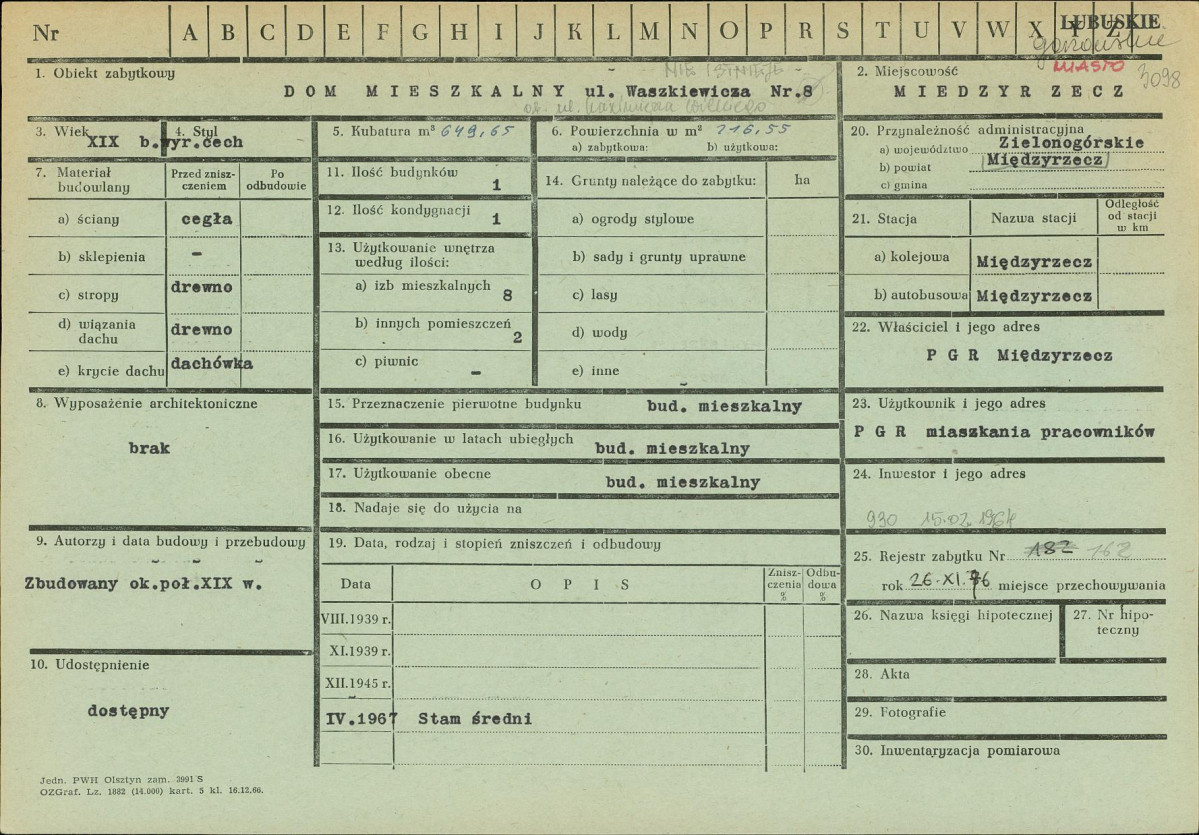 Nr A B C D E F G H I J K L M N O P R S T U V W X Y Z
LUBUSKIE
gorzowskie
MIASTO
3098
1. Obiekt zabytkowy
NIE ISTNIEJE
DOM MIESZKALNY ul. Waszkiewicza Nr.8
ob. ul. Kazimierza Wielkiego
2. Miejscowość
MIEDZYR ZECZ
3. Wiek
XIX
4. Styl
b.wyr.cech
5. Kubatura m³ 649,65
6. Powierzchnia w m² 216,55
a) zabytkowa: b) użytkowa:
7. Materiał budowlany
Przed znisz-
czeniem
Po
odbudowie
a) ściany cegła
b) sklepienia -
c) stropy drewno
d) wiązania
dachu drewno
e) krycie dachu dachówka
8. Wyposażenie architektoniczne
brak
9. Autorzy i data budowy i przebudowy
Zbudowany ok.poł.XIX w.
10. Udostępnienie
dostępny
11. Ilość budynków
1
12. Ilość kondygnacji
1
13. Użytkowanie wnętrza
według ilości:
a) izb mieszkalnych 8
b) innych pomieszczeń 2
c) piwnic -
14. Grunty należące do zabytku: ha
a) ogrody stylowe
b) sady i grunty uprawne
c) lasy
d) wody
e) inne
15. Przeznaczenie pierwotne budynku bud. mieszkalny
16. Użytkowanie w latach ubiegłych bud. mieszkalny
17. Użytkowanie obecne bud. mieszkalny
18. Nadaje się do użycia na
19. Data, rodzaj i stopień zniszczeń i odbudowy
Data OPIS
Znisz-
czenia
%
Odbu-
dowa
%
VIII.1939 r.
XI.1939 r.
XII.1945 r.
IV.1967 Stam średni
20. Przynależność administracyjna
a) województwo Zielonogórskie
b) powiat Międzyrzecz
c) gmina
21. Stacja Nazwa stacji
Odległość
od stacji
w km
a) kolejowa Międzyrzecz
b) autobusowa Międzyrzecz
22. Właściciel i jego adres
P G R Międzyrzecz
23. Użytkownik i jego adres
P G R miaszkania pracowników
24. Inwestor i jego adres
930 15.02.1964
25. Rejestr zabytku Nr 182 162
rok 26.XI.76 miejsce przechowywania
26. Nazwa księgi hipotecznej
27. Nr hipo-
teczny
28. Akta
29. Fotografie
30. Inwentaryzacja pomiarowa
Jedn. PWH Olsztyn zam. 3991 S
OZGraf. Lz. 1882 (14.000) kart. 5 kl. 16.12.66.